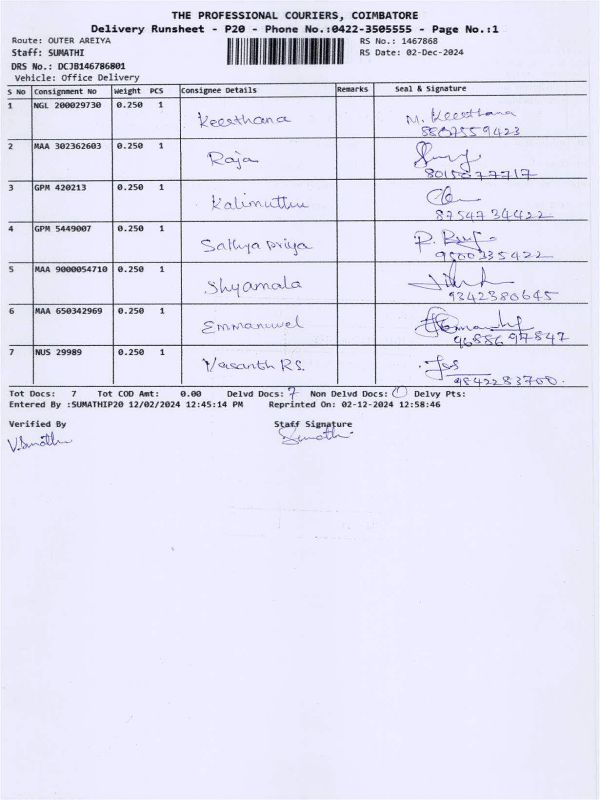 THE PROFESSIONAL COURIERS, COIMBATORE
Delivery Runsheet - P20 - Phone No.:0422-3505555 - Page No.:1
Route: OUTER AREIYA
RS No.: 1467868
Staff: SUMATHI
RS Date: 02-Dec-2024
DRS No.: DCJB146786801
Vehicle: Office Delivery
S No Consignment No Weight PCS Consignee Details Remarks Seal & Signature
1 NGL 200029730 0.250 1 Keerthana M. Keerthana
8807559423
2 MAA 302362603 0.250 1 Raja
8015077717
3 GPM 420213 0.250 1 Kalimuthu
8754734422
4 GPM 5449007 0.250 1 Sathya priya
9500335422
5 MAA 9000054710 0.250 1 Shyamala
9342380645
6 MAA 650342969 0.250 1 Emmanuvel
9688697847
7 NUS 29989 0.250 1 Vasanth R.S.
9842283700.
Tot Docs: 7 Tot COD Amt: 0.00 Delvd Docs: 7 Non Delvd Docs: 0 Delvy Pts:
Entered By :SUMATHIP20 12/02/2024 12:45:14 PM Reprinted On: 02-12-2024 12:58:46
Verified By Staff Signature
V.Sumathi Sumathi